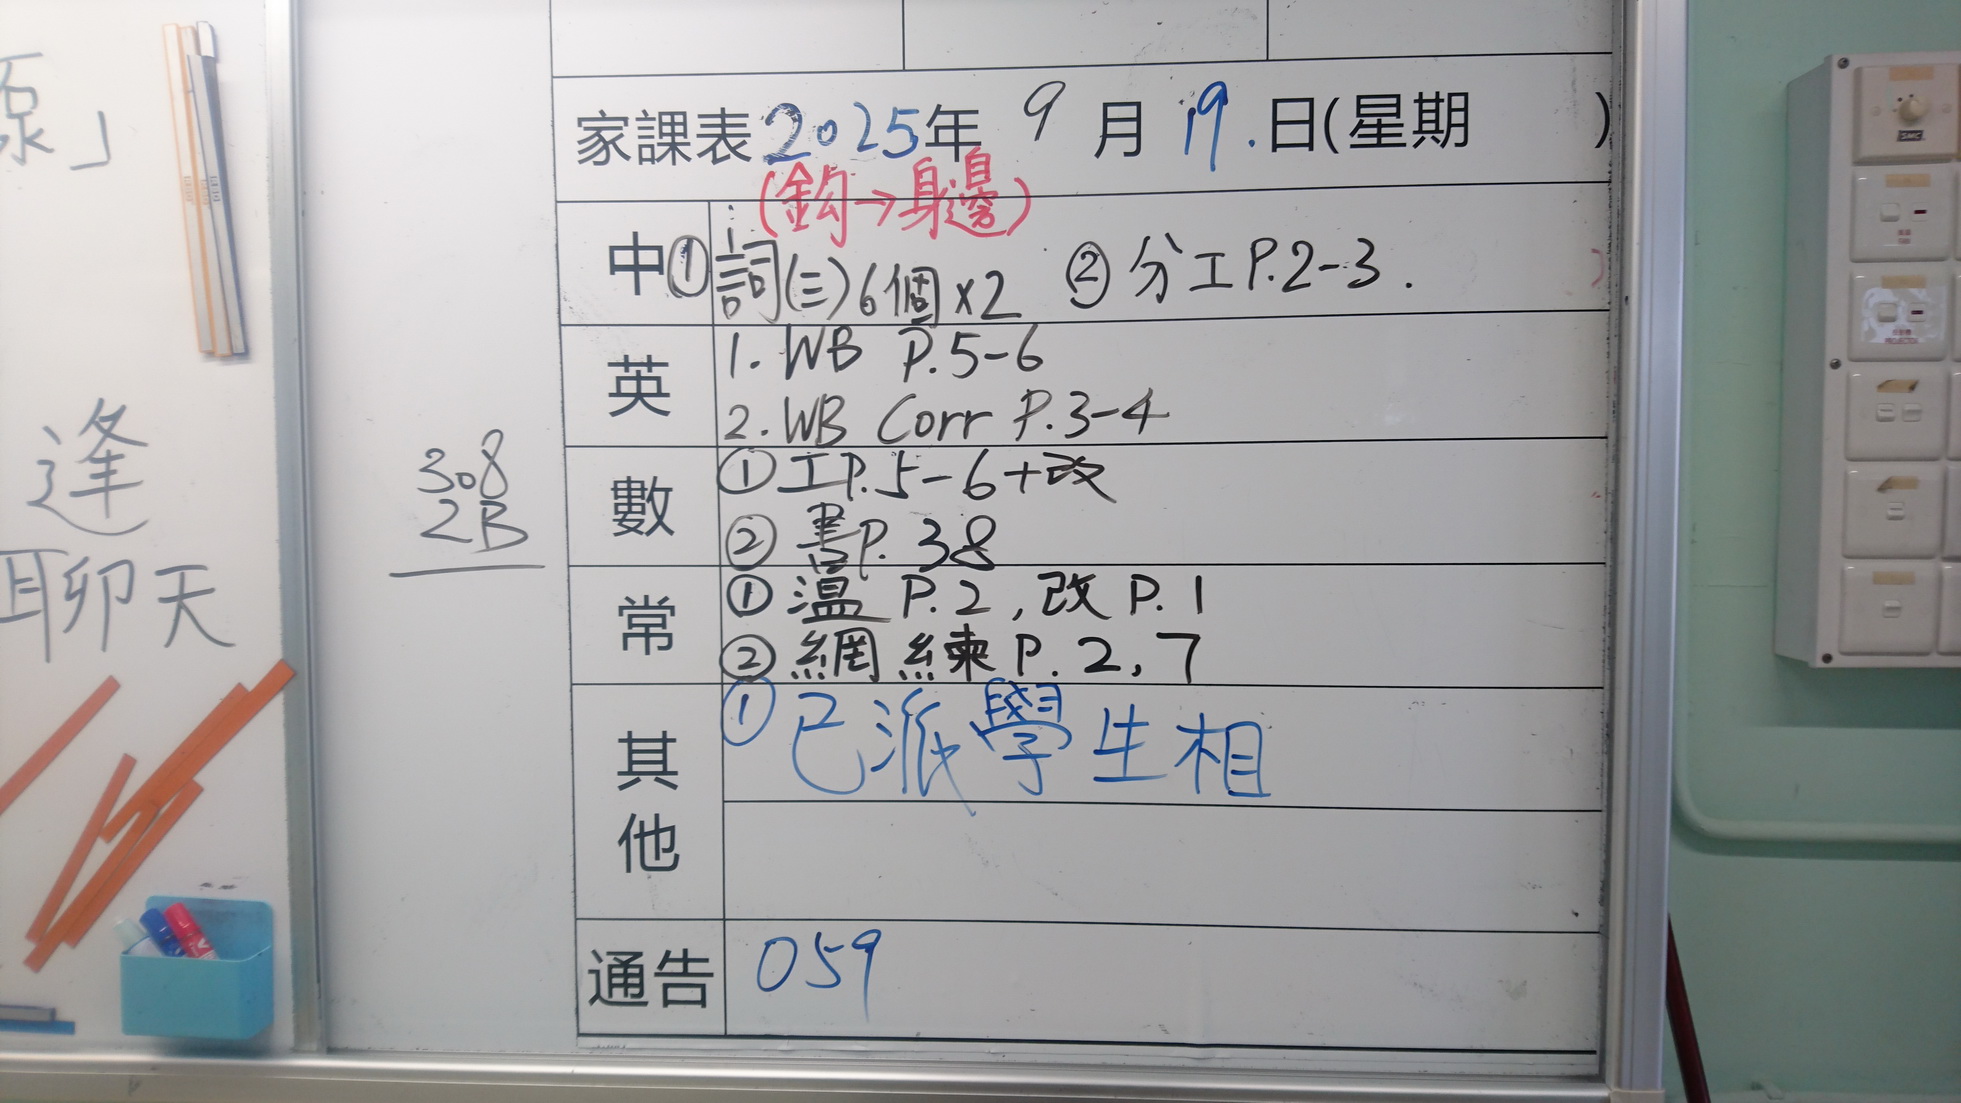 家課表 2025年 9 月 19.日(星期 )
(鈎→身邊)
中 ①詞(三)6個×2 ②分工P.2-3.
英 1. WB P.5-6
2. WB Corr P.3-4
數 ①工P.5-6+改
②書P. 38
常 ①溫 P.2,改 P.1
②網練P.2,7
其他 ①已派學生相
通告 059
308
2B
逢
聊天